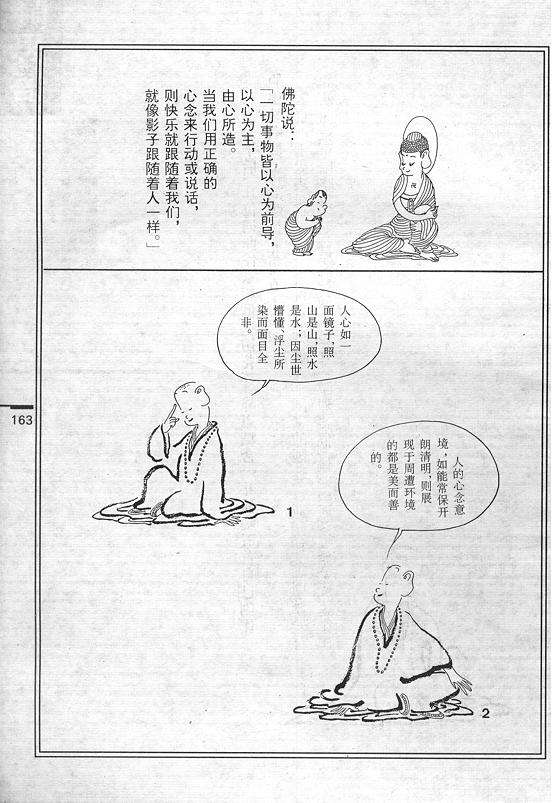 佛陀说：
「一切事物皆以心为前导，
以心为主，
由心所造。
当我们用正确的
心念来行动或说话，
则快乐就跟随着我们，
就像影子跟随着人一样。」
人心如一
面镜子，照
山是山，照水
是水；因尘世
懵懂、浮尘所
染而面目全
非。
1
163
人的心念意
境，如能常保开
朗清明，则展
现于周遭环境
的都是美而善
的。
2